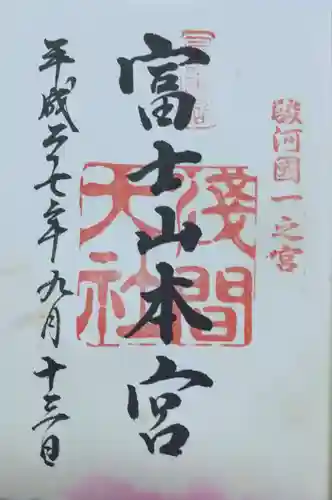 駿河國一之宮
富士山本宮
淺間
大社
平成二七年九月十三日